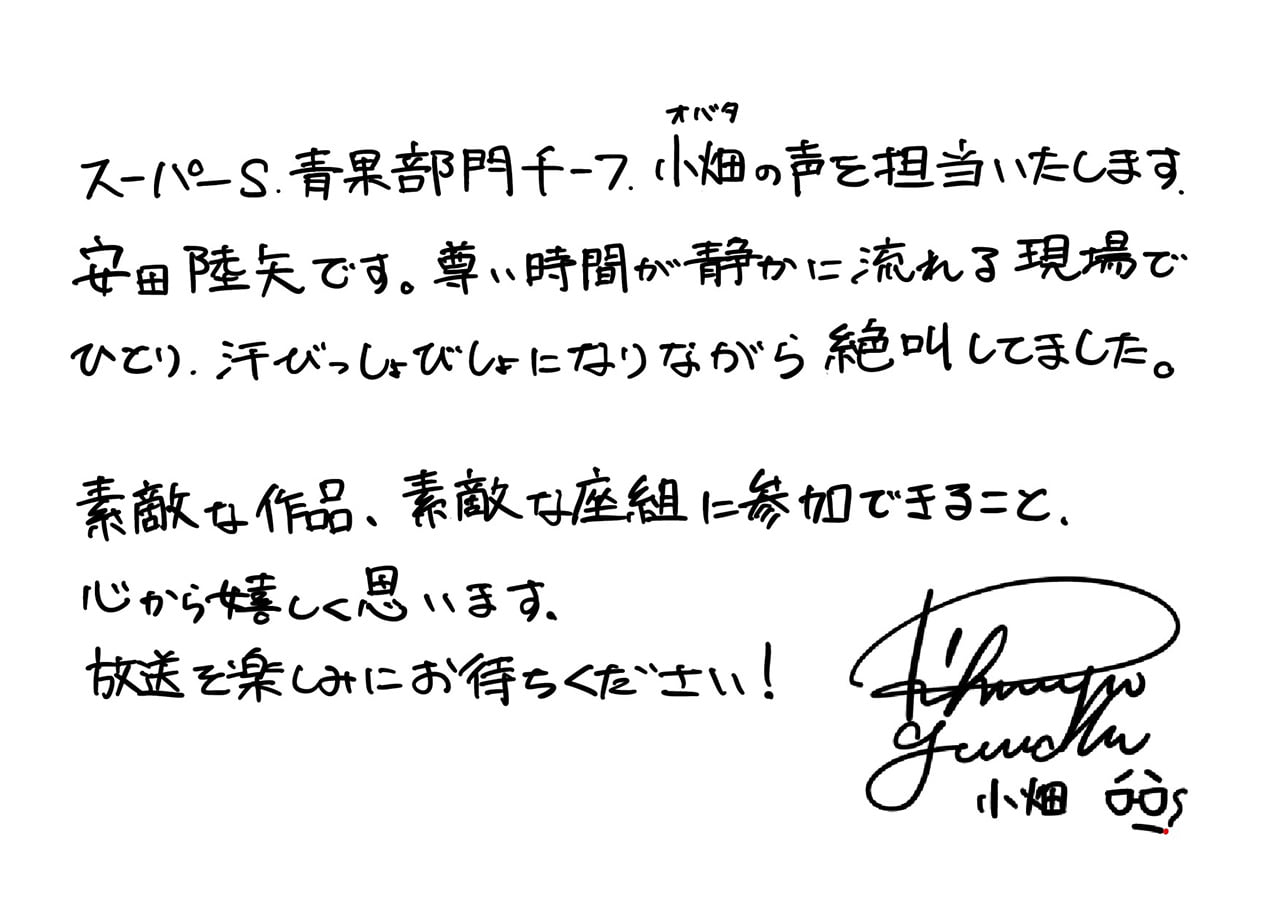 オバタ
スーパーS.青果部門チーフ.小畑の声を担当いたします.
安田陸矢です。尊い時間が静かに流れる現場で
ひとり.汗びっしょびしょになりながら絶叫してました。
素敵な作品、素敵な座組に参加できること.
心から嬉しく思います.
放送を楽しみにお待ちください!
小畑